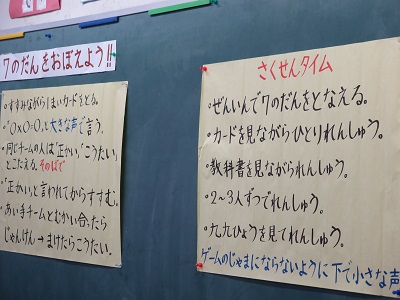 7のだんをおぼえよう!!
・すすみながら1まいカードをとる。
・「○×○=○。」と大きな声で言う。
・同じチームの人は「正かい」、「こうたい」とこたえる。そのばで
・「正かい」と言われてからすすむ。
・あい手チームとむかい合ったら
じゃんけん→まけたらこうたい。
さくせんタイム
・ぜんいんで7のだんをとなえる。
・カードを見ながらひとりれんしゅう。
・教科書を見ながられんしゅう。
・2~3人ずつでれんしゅう。
・九九ひょうを見てれんしゅう。
ゲームのじゃまにならないように下で小さな声